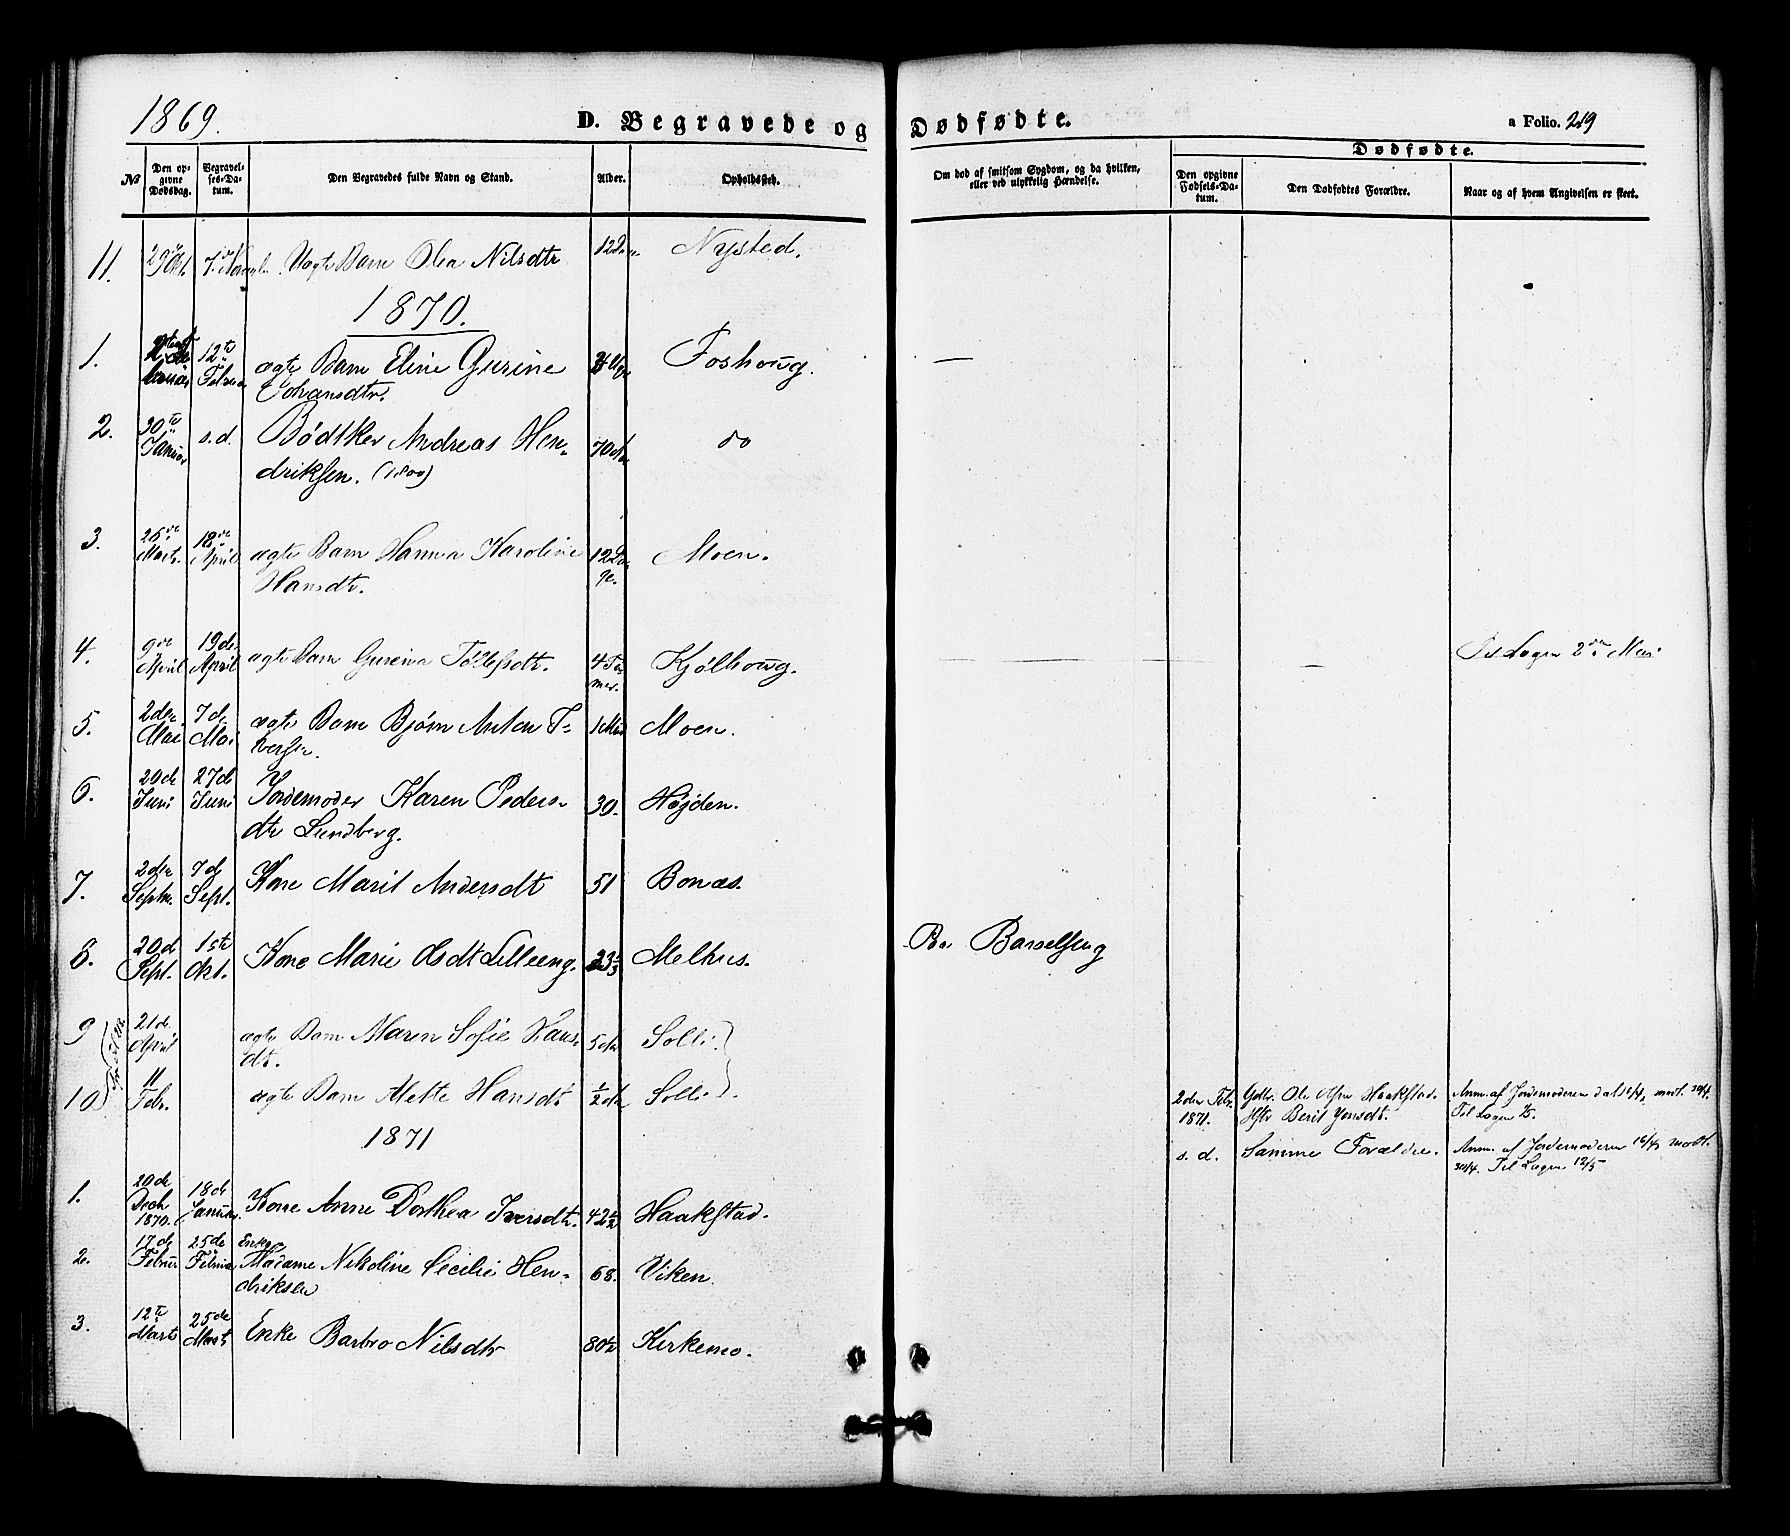 1869.
D. Begravede og Dødfødte.
a Folio. 219
Dødfødte.
No
Den opgivne Dødsdag.
Begravelses-Datum.
Den Begravedes fulde Navn og Stand.
Alder.
Opholdssted.
Om død af smitsom Sygdom, og da hvilken,
eller ved ulykkelig Hændelse.
Den opgivne Fødsels-Datum.
Den Dødfødtes Forældre.
Naar og af hvem Angivelsen er skeet.
11. 29 Okt. 7 Novemb. Uægte Barn Olea Nilsdtr 12 Nystad.
1870.
1. 12te Februar ægte Barn Eline Gurine Foshoug. —
Johansdtr.
2. 30te Januar s. d. Bødtker Andreas Hen- 70 do
driksen. (1800)
3. 26de Marts. 18de April ægte Barn Hanna Karoline 12 Da- Moen.
Hansdtr. ge.
4. 9de April 19de April ægte Barn Gureina Tøllefsdtr. 4 Ti- Kjølhoug. — —
mer.
5. 2den Mai 7de Mai ægte Barn Bjørn Anton I- Moen.
versen.
6. 20de Juni 27de Juni Jordemoder Karen Peders- 30. Højden.
dtr Lundberg.
7. 2den Septbr. 7de Sept. Kone Marit Andersdt 51 Bonæs.
8. 20d Sept. 1ste Okt. Kone Marie Olsdt Lilleeng. Melhus. Barselseng
9 21de April ægte Barn Maren Sofie Hans- Solli.
dt.
10 11 Febr. ægte Barn Mette Hansdt ½ Solli.
2den Febr. 1871. Ole Haakstad. Berit Jonsdt. Anm. af Jordemoderen
1871
s. d. Samme Forældre. Anm. af Jordemoderen
Til Lægen 12/5
1. 20de Decb 1870. 18de Januar. Kone Anne Dorthea Iversdtr. 42½ Haakstad.
2. 17de Februar 25de Februar Enke
Madame Nikoline Cecilie Hen- 68. Viken.
driksen
3. 12te Marts 25de Marts Enke Barbro Nilsdtr 80½ Kirkemo.